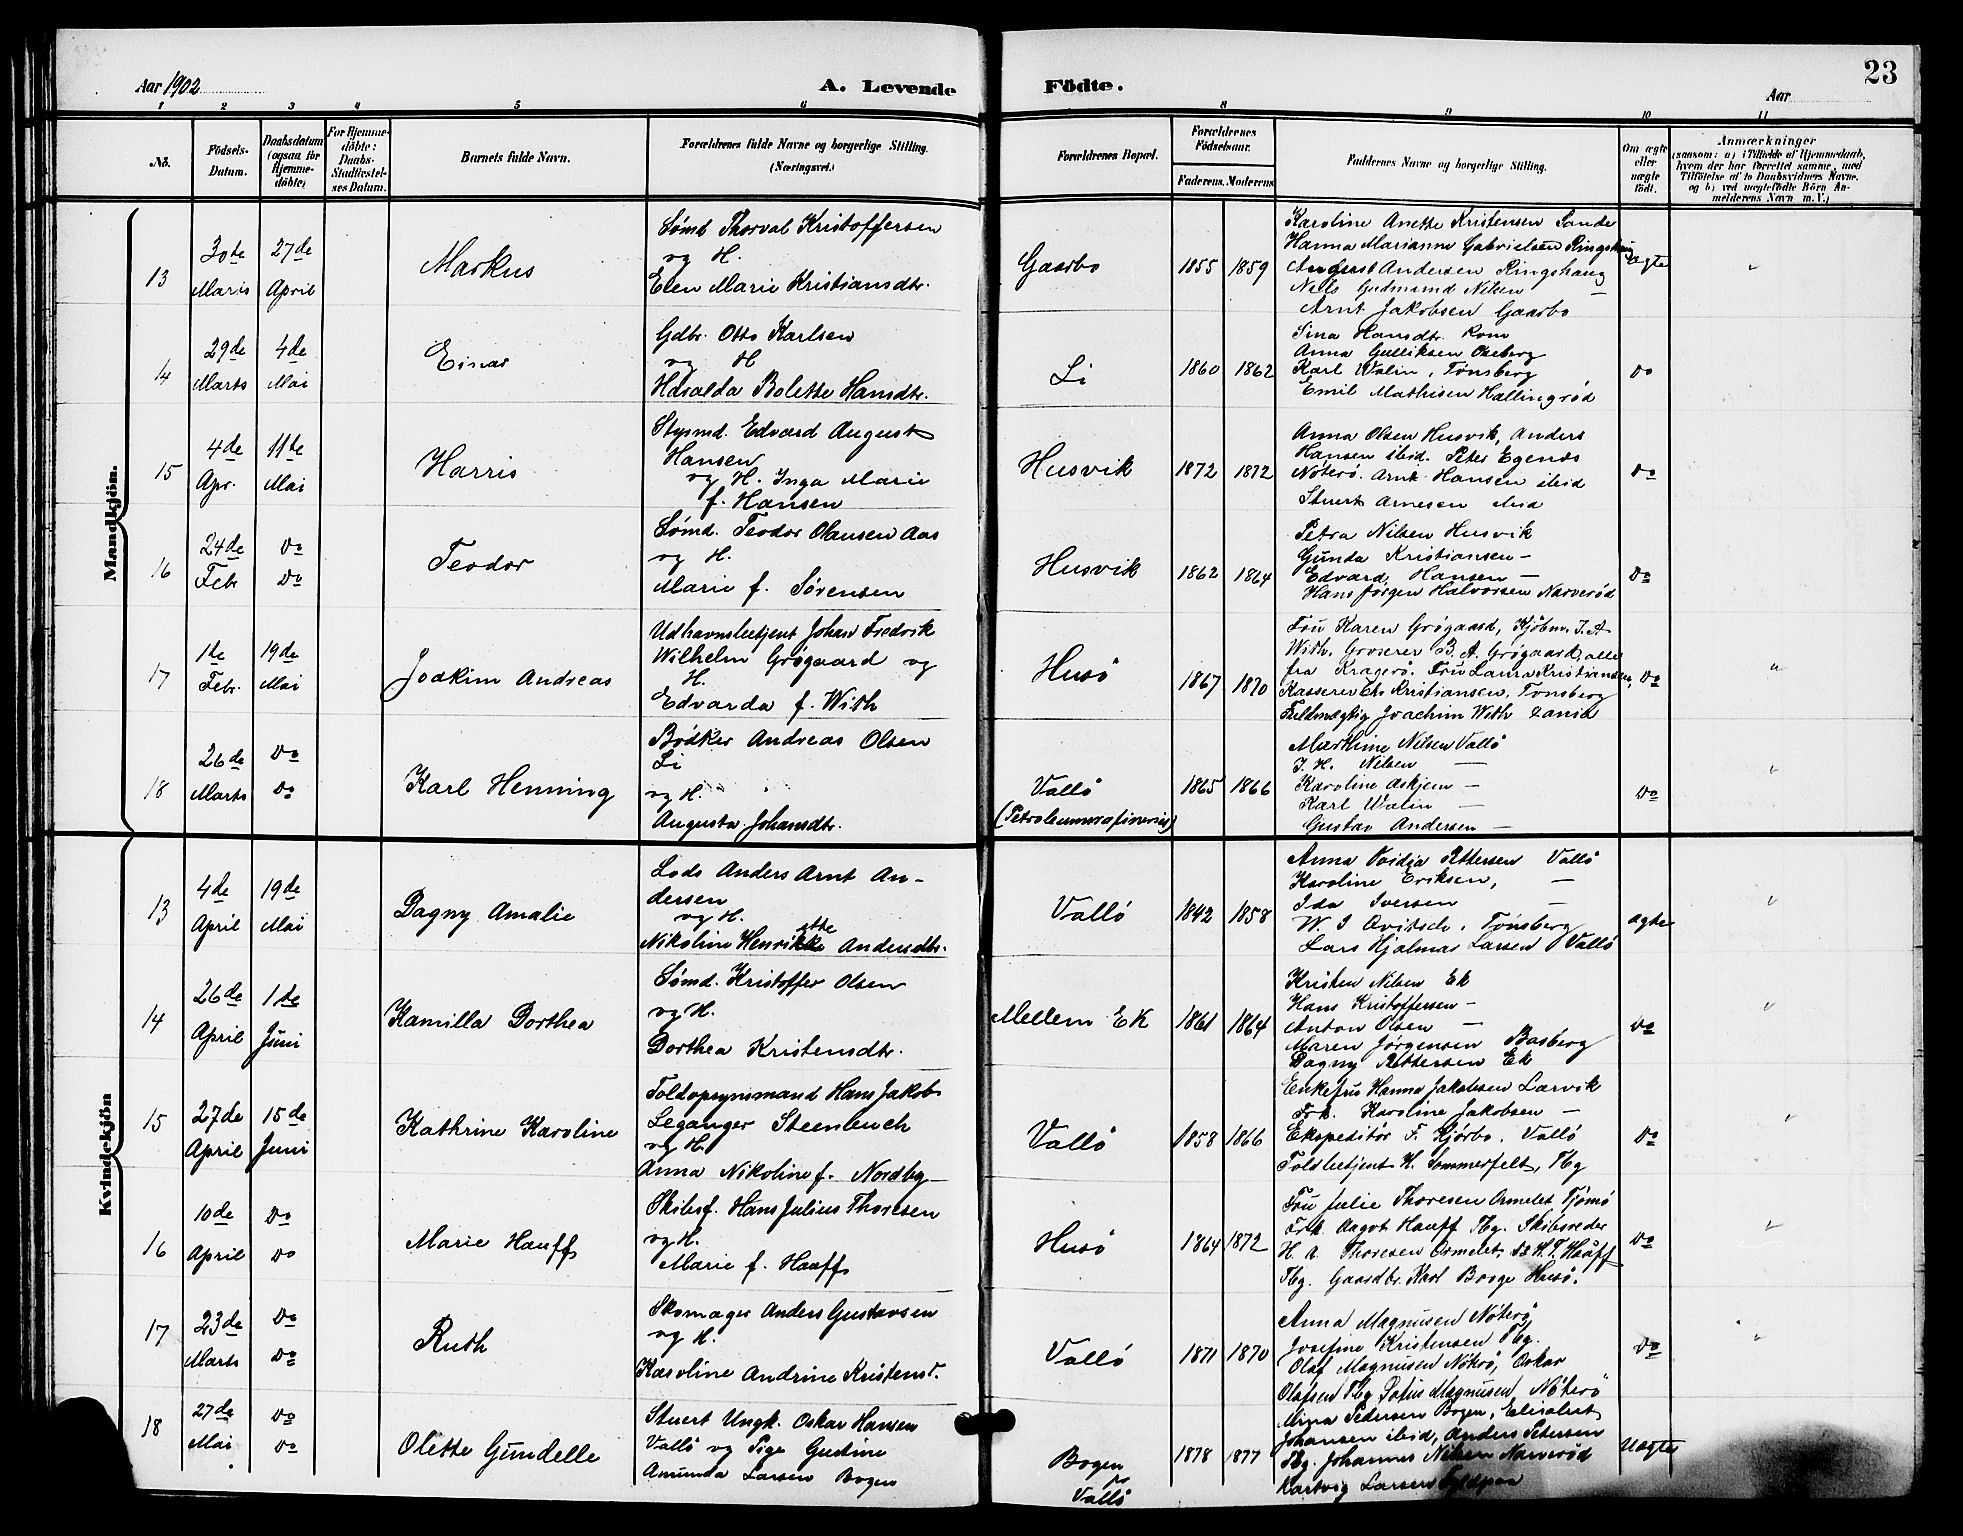 Aar 1902
A. Levende
Födte.
Aar
23
1 2 3 4 5 6 8 9 10 11
No.
Födsels-
Datum.
Daabsdatum
(ogsaa for
Hjemme-
döbte)
For Hjemme-
döbte:
Daabs-
Stadfæstel-
ses Datum.
Barnets fulde Navn.
Forældrenes fulde Navne og borgerlige Stilling.
(Næringsvei.)
Forældrenes Bopæl.
Forældrenes
Födselsaar.
Faderens. Moderens.
Faddernes Navne og borgerlige Stilling.
Om ægte
eller
uægte
födt.
Anmærkninger
(saasom: a) i Tilfælde af Hjemmedaab,
hvem der har forrettet samme, med
Tilföielse af to Daabsvidners Navne.
og b) ved uægtefödte Börn An-
melderens Navn m.V.)
Mandkjön.
13
30te
Marts
27de
April
Markus
Sømd Thorval Kristoffersen
og H.
Elen Marie Kristiansdtr.
Gaarbo
1855 1859
Karoline Anette Kristensen Sande
Hanna Marianne Gabrielsen Ringshaug
Anders Andersen Ringshaug
Nils Gudmund Nilsen —
Arnt Jakobsen Gaarbo
ægte
14
29de
Marts
4de
Mai
Einar
Gdbr. Otto Karlsen
og H
Haralda Bolette Hansdtr.
Li
1860 1862
Sina Hansdtr. Rom
Anna Gulliksen Oseberg
Karl Walin, Tønsberg
Emil Mathisen Hallingrød
Do
15
4de
Apr.
11te
Mai
Harris
Stymd. Edvard August
Hansen
og H. Inga Marie
f. Hansen
Husvik
1872 1872
Anna Olsen Husvik, Anders
Hansen ibid. Peter Egenæs
Nøterø. Arnt Hansen ibid
Stuert Arnesen ibid
Do
16
24de
Febr
Do
Do
Teodor
Sømd. Teodor Olausen Aas
og H.
Marie f. Sørensen
Husvik
1862 1864
Petra Nilsen Husvik
Gunda Kristiansen —
Edvard Hansen —
Hans Jørgen Halvorsen Narverød
Do
17
1te
Febr.
19de
Mai
Joakim Andreas
Udhavnsbetjent Johan Fredrik
Wilhelm Grøgaard og
H.
Edvarda f. With
Husö
1867 1870
Fru Karen Grøgaard, Kjøbm. J. A
With, Groserer B. A. Grøgaard, alle
fra Kragerö. Fru Laura Kristiansen,
Kasserer Chr Kristiansen, Tønsberg
Fuldmægtig Joachim With
Do
18
26de
Marts
Do
Do
Karl Henning
Bødker Andreas Olsen
Li
og H.
Augusta Johansdtr.
Vallö
(Petroleumsrafineriet)
1865 1866
Marthine Nilsen Vallö
J. H. Nilsen —
Karoline Askjem —
Karl Walin —
Gustav Andersen —
Do
Kvindekjön
13
4de
April
19de
Mai
Dagny Amalie
Lods Anders Arnt An-
dersen
og H.
Nikoline Henrikke ette Andersdtr.
Vallö
1842 1858
Anna Ovidia Pettersen Vallö
Karoline Eriksen, —
Ida Iversen —
W. J Avitsch, Tønsberg
Lars Hjalmar Larsen Vallö
ægte
14
26de
April
1te
Juni
Kamilla Dorthea
Sømd. Kristoffer Olsen
og H.
Dorthea Kristensdtr.
Mellem Ek
1861 1864
Kristen Nilsen Ek
Hans Kristoffersen —
Anton Olsen —
Maren Jørgensen Basberg
Dagny Pettersen Ek
Do
15
27de
April
15de
Juni
Kathrine Karoline
Toldopsynsmand Hans Jakob
Leganger Steenbuch
og H
Anna Nikoline f. Nordby
Vallö
1858 1866
Enkefru Hanna Jakobsen Larvik
Frk. Karoline Jakobsen —
Ekspeditör F. Kjørbo. Vallö
Toldbetjent H. Sommerfelt, Tbg
Do
16
10de
April
Do
Do
Marie Hauff
Skibsf. Hans Julius Thoresen
og H.
Marie f. Hauff
Husö
1864 1872
Fru Julie Thoresen Ormelet Tjømø
Frk Aagot Hauff Tbg. Skibsreder
H. A Thoresen Ormelet. H. T. Hauff
Tbg. Gaardbr. Karl Borge Husö.
Do
17
23de
Marts
Do
Do
Ruth
Skomager Anders Gustavsen
og H.
Karoline Andrine Kristensd.
Vallö
1871 1870
Anna Magnusen Nøterø
Josefine Kristensen Tbg.
Olaf Magnusen Nøterø, Oskar
Olafsen Tbg. Magnusen Nöterö
Do
18
27de
Mai
Do
Do
Olette Gundelle
Stuert Ungk. Oskar Hansen
Vallö og Pige Gustine
Amunda Larsen Bogen
Bogen
pr
Vallö
1878 1877
Mina Pedersen Bogen, Elisabet
Johansen ibid, Anders Petersen
Tbg. Johannes Nilsen Narverød
Hartvig Larsen
Uægte